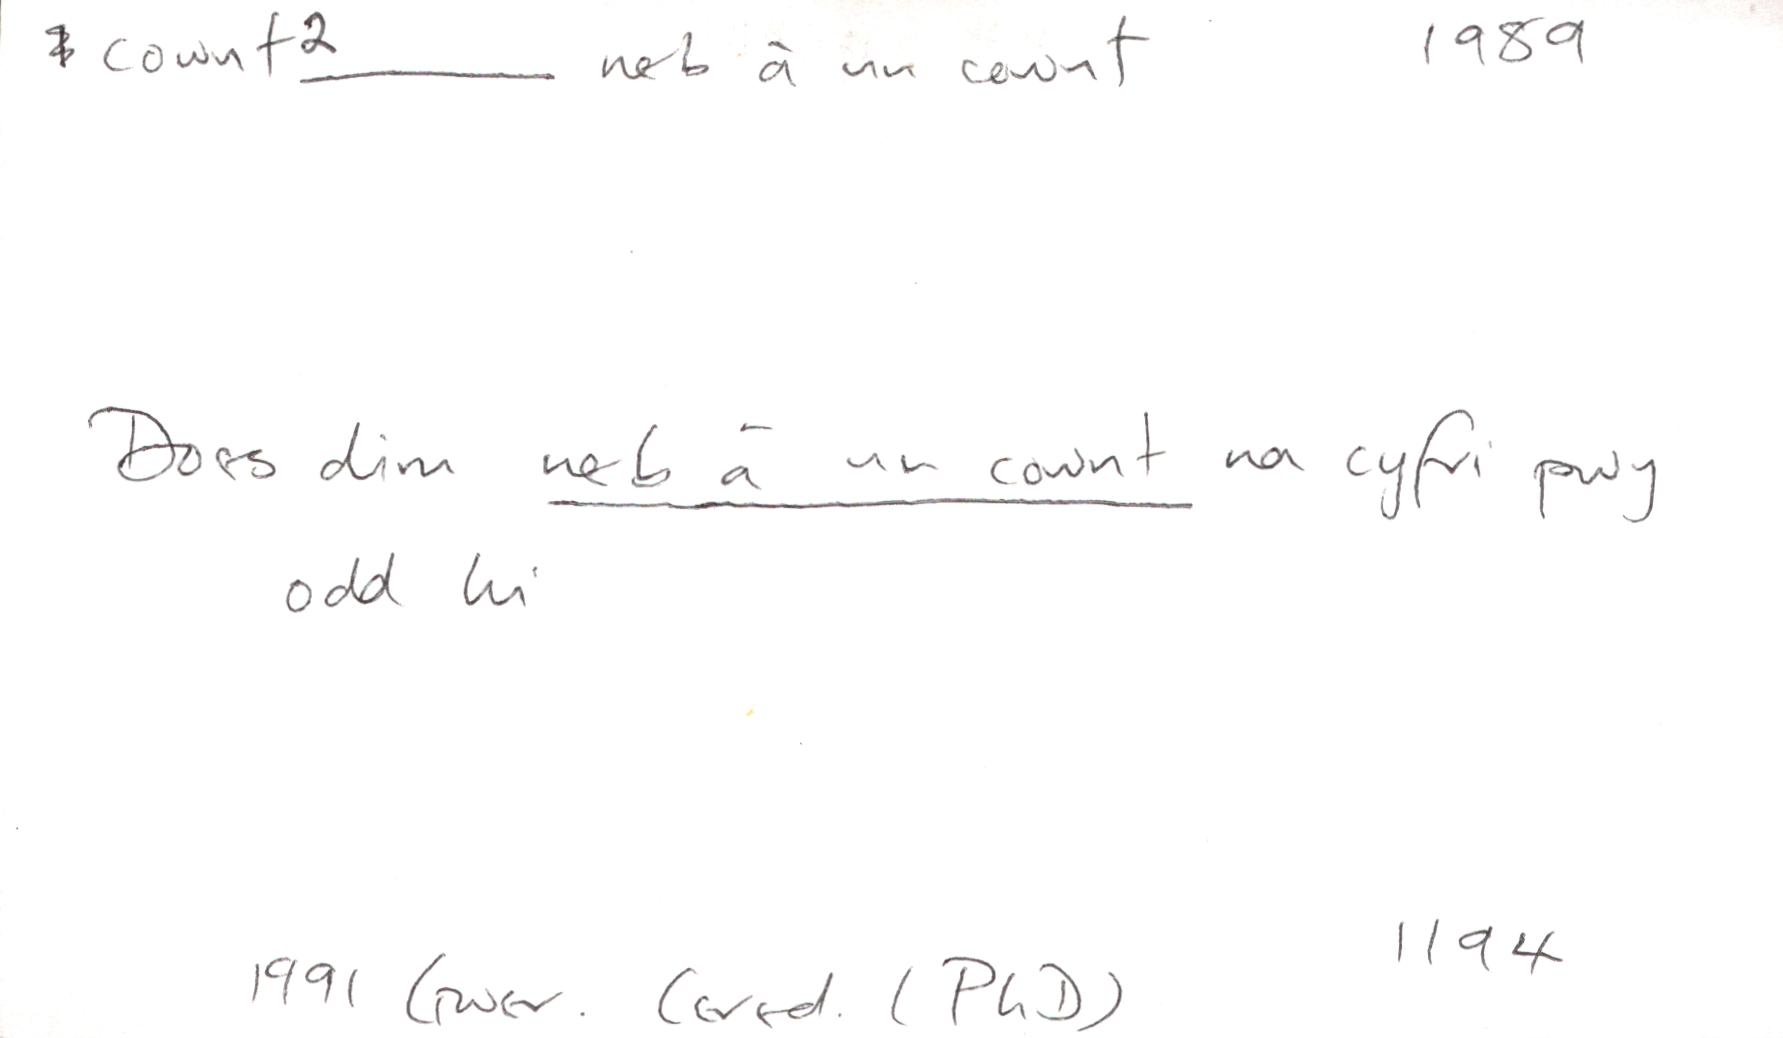 cownt2 neb â un cownt 1989
Does dim neb â un cownt na cyfri pwy
odd hi
1194
1991 Gwer. Cered. (PhD)